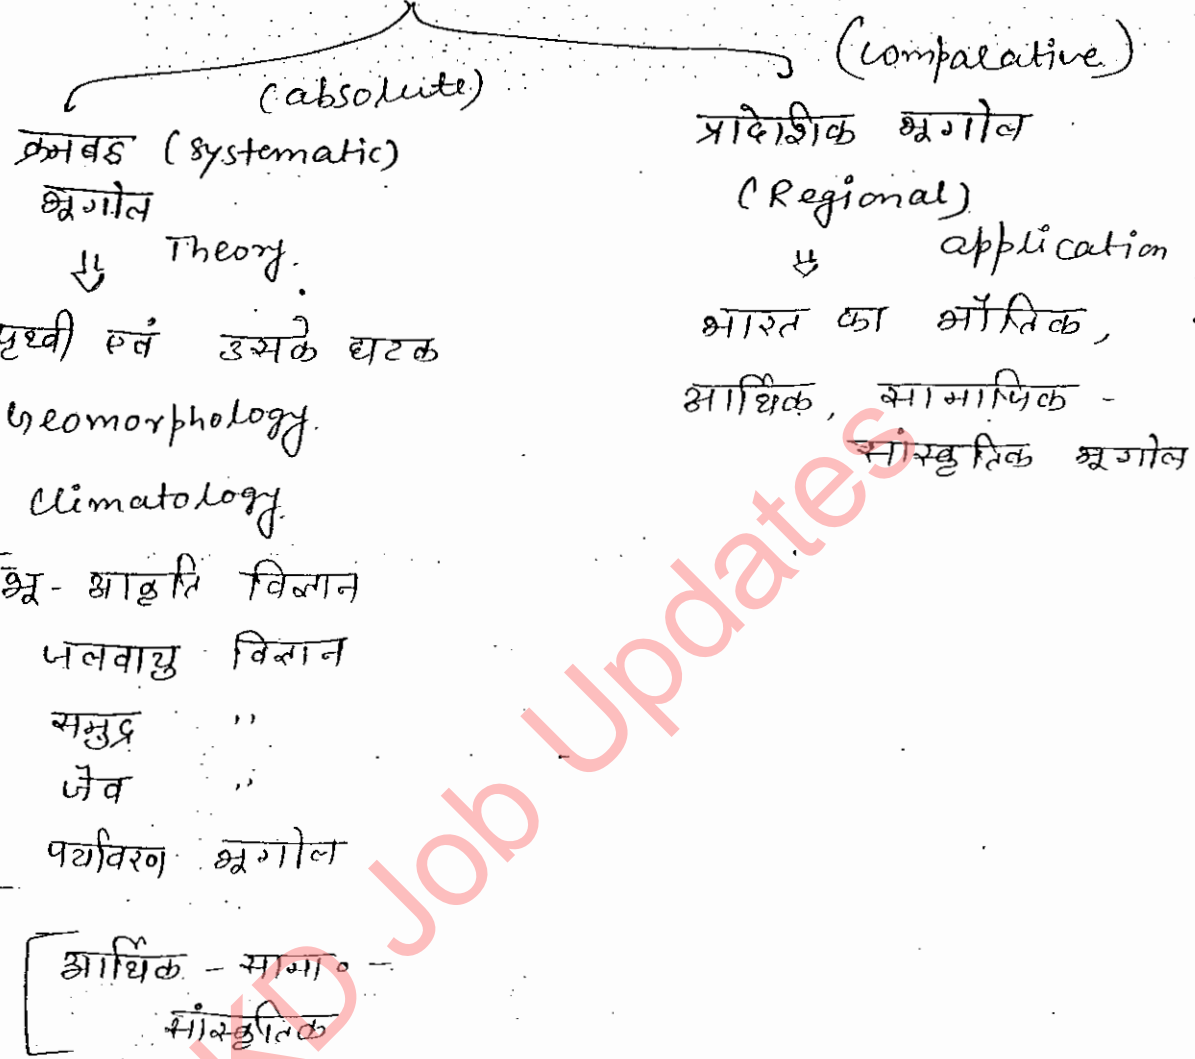 (absolute)
क्रमबद्ध (systematic)
भूगोल
Theory.
पृथ्वी एवं उसके घटक
Geomorphology.
Climatology.
भू-आकृति विज्ञान
जलवायु विज्ञान
समुद्र ,,
जैव ,,
पर्यावरण भूगोल
आर्थिक - सामा० -
सांस्कृतिक
(comparative)
प्रादेशिक भूगोल
(Regional)
application
भारत का भौतिक,
आर्थिक, सामाजिक -
सांस्कृतिक भूगोल
KD Job Updates